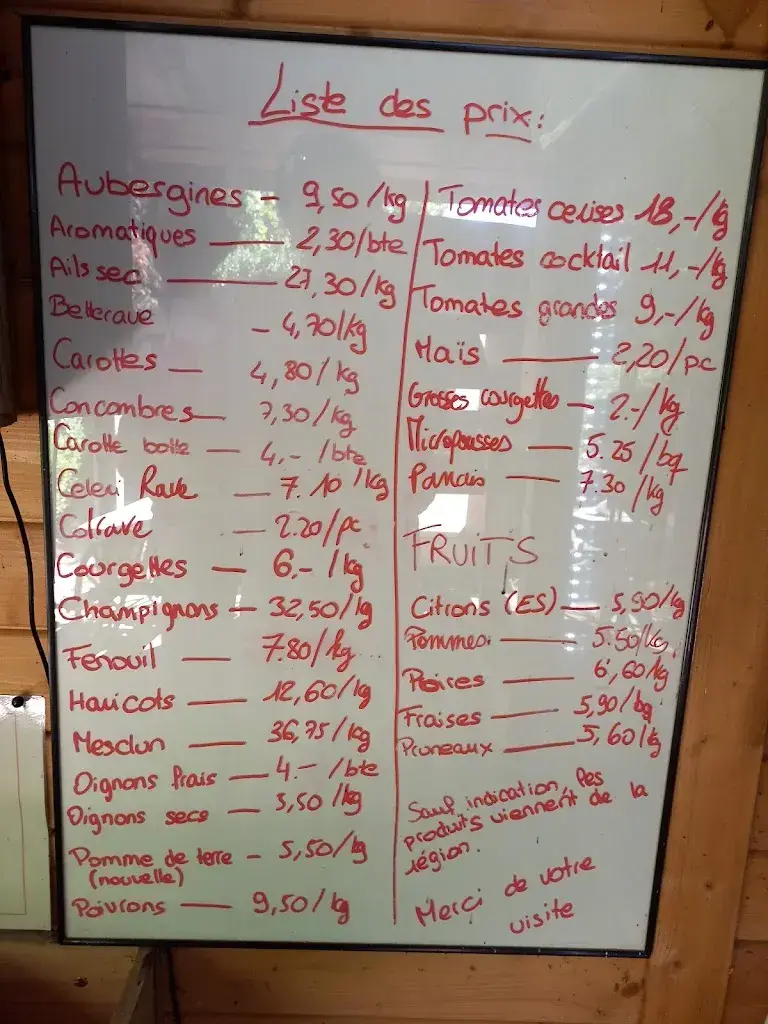 Liste des prix:
Aubergines - 9,50/kg
Aromatiques - 2,30/bte
Ails sec - 27,30/kg
Betterave - 4,70/kg
Carottes - 4,80/kg
Concombres - 7,30/kg
Carotte botte - 4.- /bte
Celeri Rave - 7.10/kg
Colrave - 2.20/pc
Courgettes - 6.- /kg
Champignons - 32,50/kg
Fenouil - 7.80/kg
Haricots - 12,60/kg
Mesclun - 36,75/kg
Oignons frais - 4.- /bte
Oignons secs - 5,50/kg
Pomme de terre - 5,50/kg
(nouvelle)
Poivrons - 9,50/kg
Tomates cerises 18,-/kg
Tomates cocktail 11,-/kg
Tomates grandes 9,-/kg
Maïs - 2,20/pc
Grosses courgettes - 2.-/kg
Micropousses - 5.25/bq
Panais - 7.30/kg
FRUITS
Citrons (ES) - 5,90/kg
Pommes - 5.50/kg
Poires - 6,60/kg
Fraises - 5,90/bq
Pruneaux - 5,60/kg
Sauf indication, les
produits viennent de la
région.
Merci de votre
visite